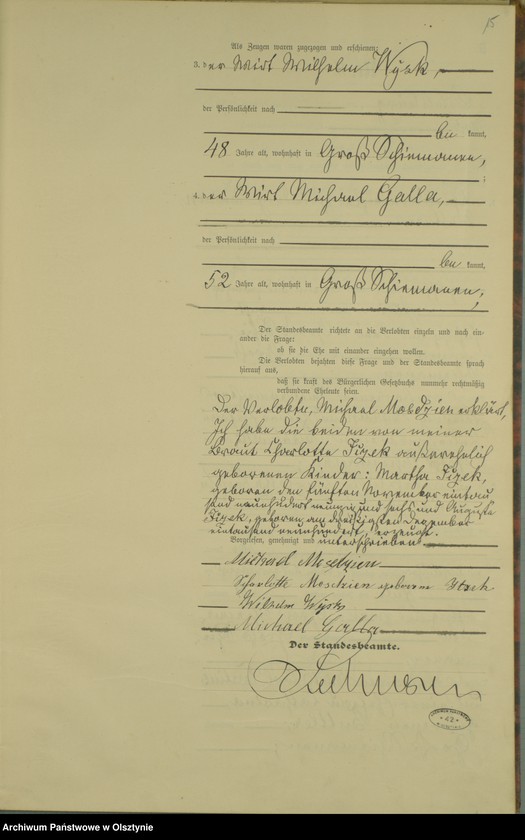 15
Als Zeugen waren zugezogen und erschienen:
3. der Wirt Wilhelm Wysk,
der Persönlichkeit nach
be kannt,
48 Jahre alt, wohnhaft in Groß Schiemanen,
;
4. der Wirt Michael Galla,
der Persönlichkeit nach
be kannt,
52 Jahre alt, wohnhaft in Groß Schiemanen,
;
Der Standesbeamte richtete an die Verlobten einzeln und nach ein-
ander die Frage:
ob sie die Ehe mit einander eingehen wollen.
Die Verlobten bejahten diese Frage und der Standesbeamte sprach
hierauf aus,
daß sie kraft des Bürgerlichen Gesetzbuchs nunmehr rechtmäßig
verbundene Eheleute seien.
Der Verlobte, Michael Mosdzien erklärt,
Ich habe die beiden von meiner
Braut Charlotte außerehelich
geborenen Kinder: Martha
geboren den fünften November eintau
send und sechs und Augusta
geboren am dreißigsten Dezember
eintausend neunhundert erzeugt.
Vorgelesen, genehmigt und unterschrieben
Michael Mosdzien
Scharlotte Mosdzien geborene
Wilhelm Wysk
Michael Galla
Der Standesbeamte.
Archiwum Państwowe w Olsztynie